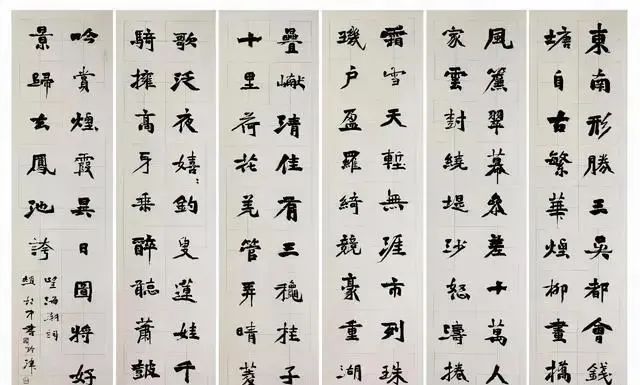 東南形勝三吳都會錢
塘自古繁華煙柳畫橋
風簾翠幕參差十萬人
家雲封繞堤沙怒濤捲
霜雪天塹無涯市列珠
璣戶盈羅綺競豪重湖
疊巘清佳有三穐桂子
十里荷花羌管弄晴菱
歌泛夜嬉〻釣叟蓮娃千
騎擁高牙乘醉聽蕭鼓
吟賞煙霞異日圖將好
景歸去鳳池誇
望海潮詞